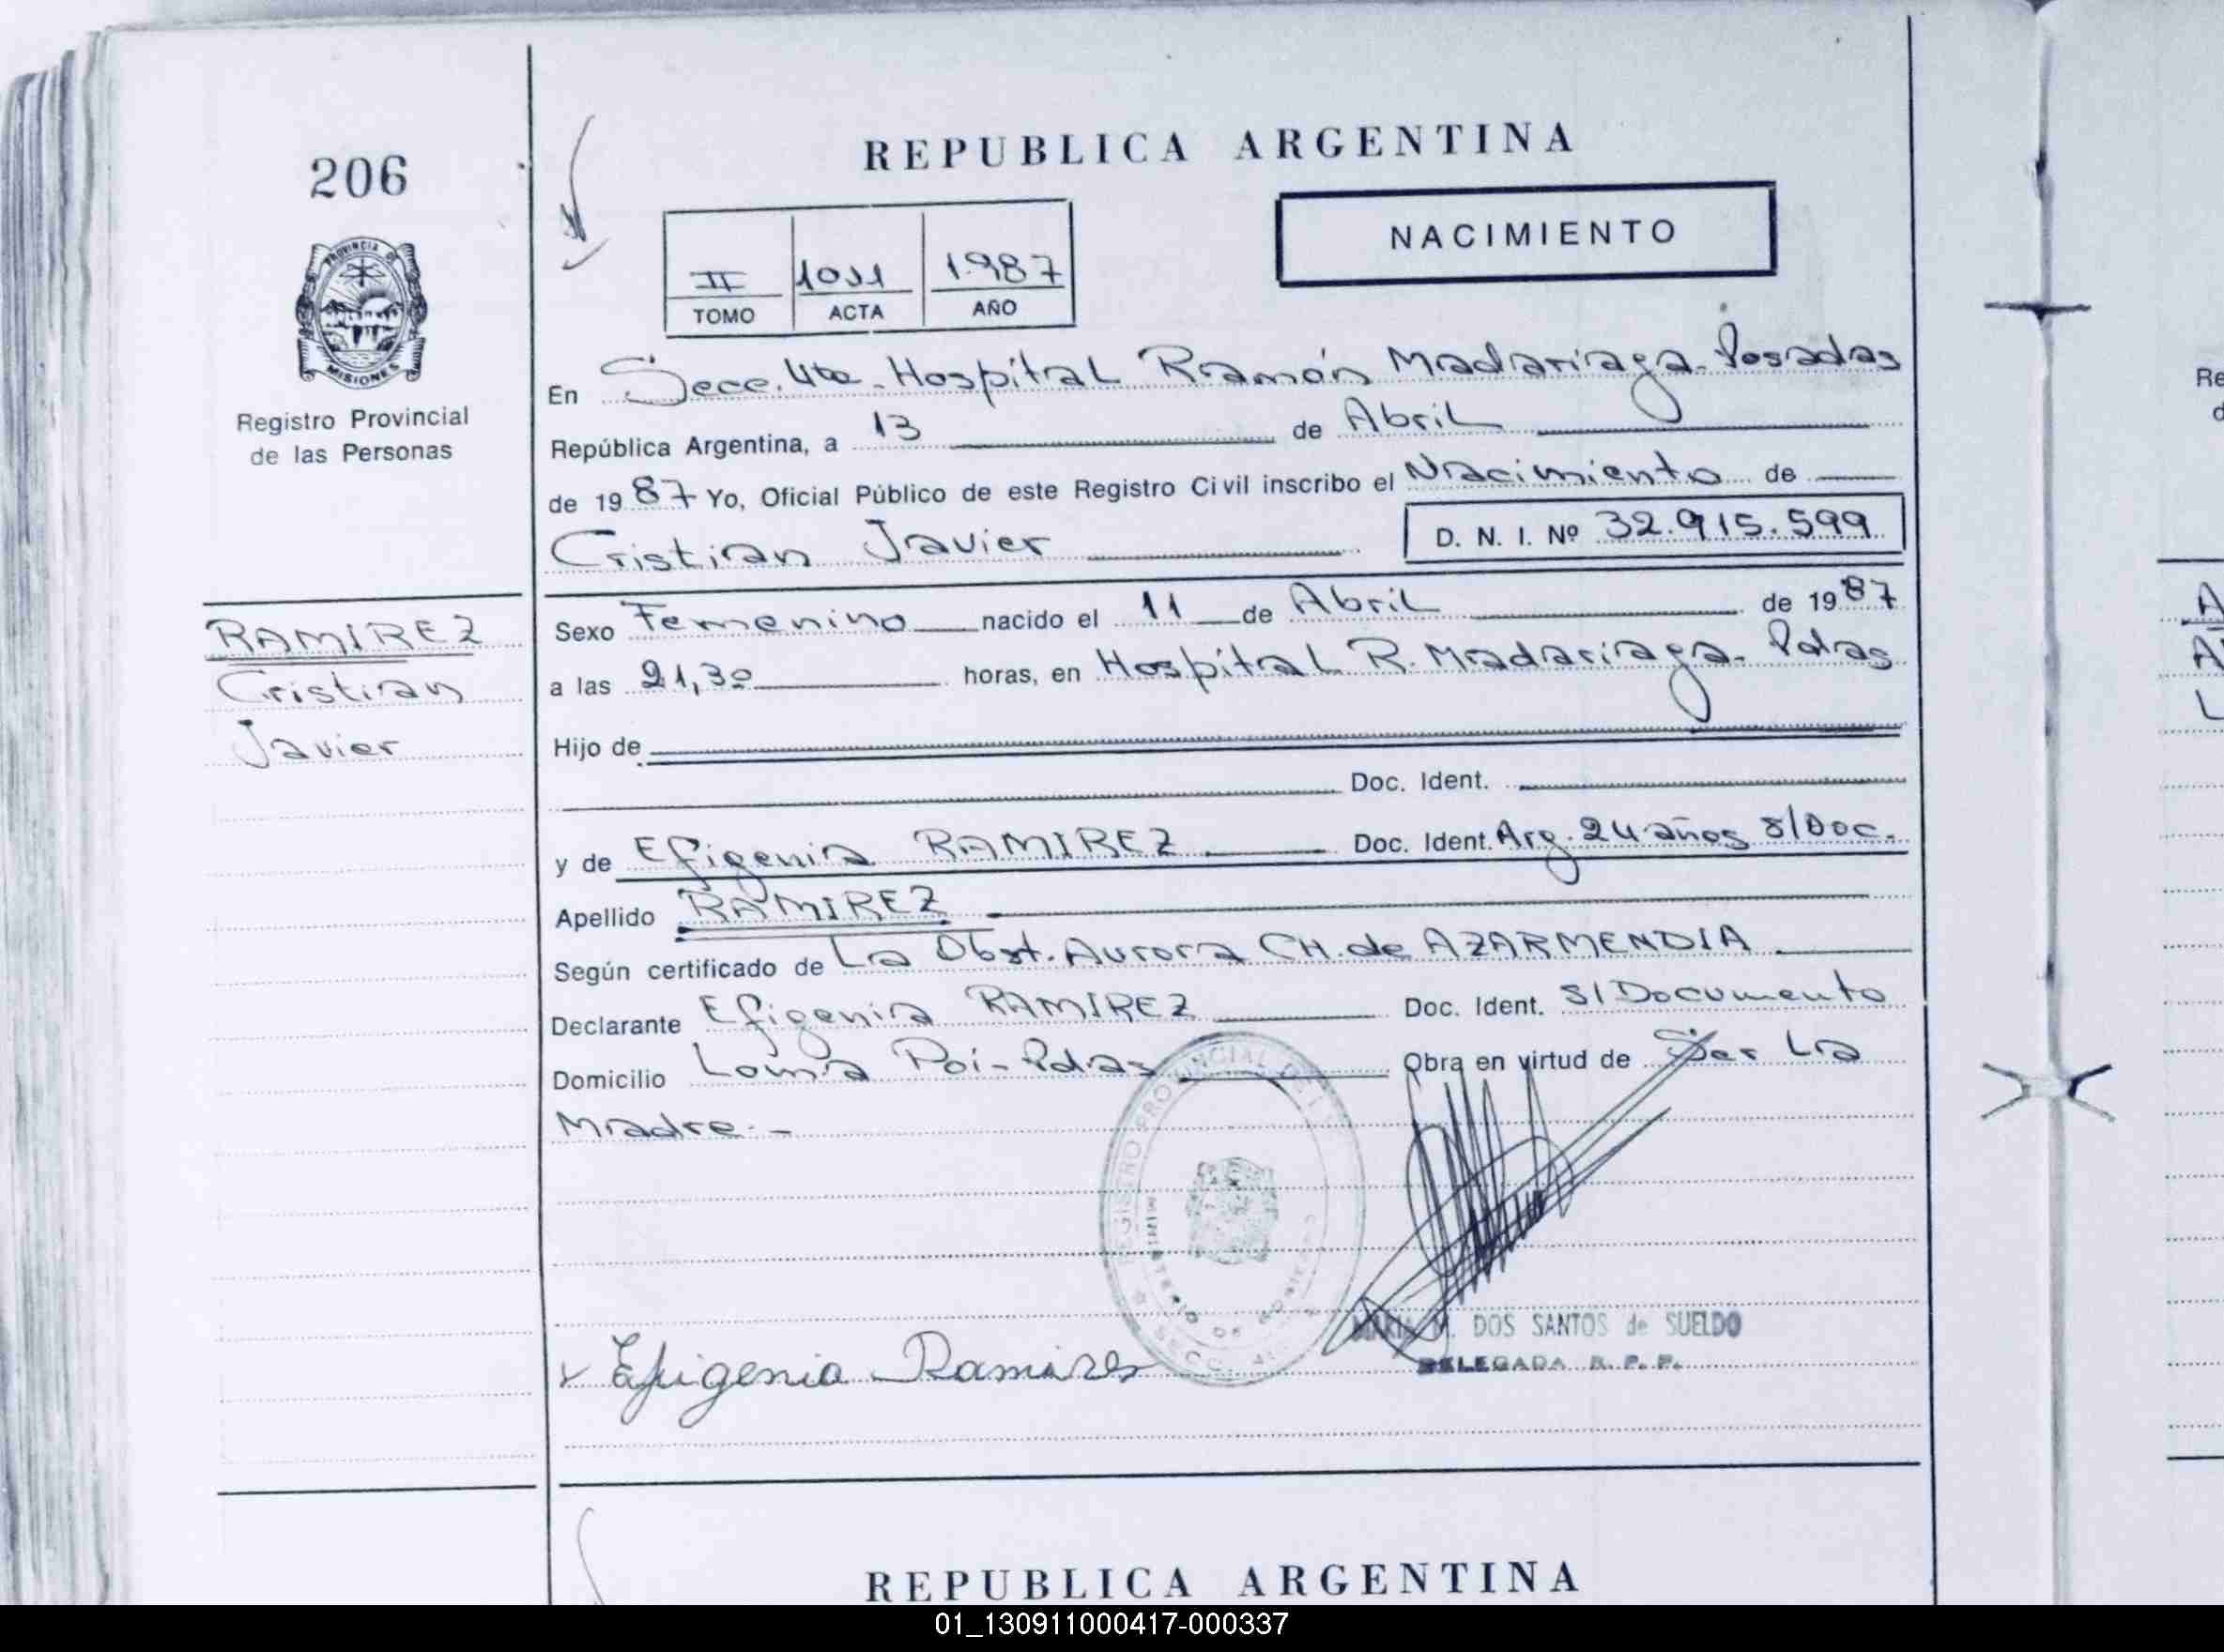 206
PROVINCIA DE
MISIONES
Registro Provincial
de las Personas
RAMIREZ
Cristian
Javier
REPUBLICA ARGENTINA
II 1011 1987
TOMO ACTA AÑO
NACIMIENTO
En Secc. 4ta. Hospital Ramón Madariaga. Posadas
República Argentina, a 13 de Abril
de 1987 Yo, Oficial Público de este Registro Civil inscribo el Nacimiento de
Cristian Javier D. N. I. Nº 32.915.599
Sexo Femenino nacido el 11 de Abril de 1987
a las 21,30 horas, en Hospital R. Madariaga. Pdas
Hijo de
Doc. Ident.
y de Efigenia RAMIREZ Doc. Ident. Arg. 24 años s/Doc.
Apellido RAMIREZ
Según certificado de La Obst. Aurora CH. de AZARMENDIA
Declarante Efigenia RAMIREZ Doc. Ident. S/Documento
Domicilio Loma Poi-Pdas Obra en virtud de Ser La
Madre.-
REGISTRO PROVINCIAL DE
Epigenia Ramires
MARIA M. DOS SANTOS de SUELDO
DELEGADA R. P. P.
REPUBLICA ARGENTINA
Re
d
A
A
L
01_130911000417-000337